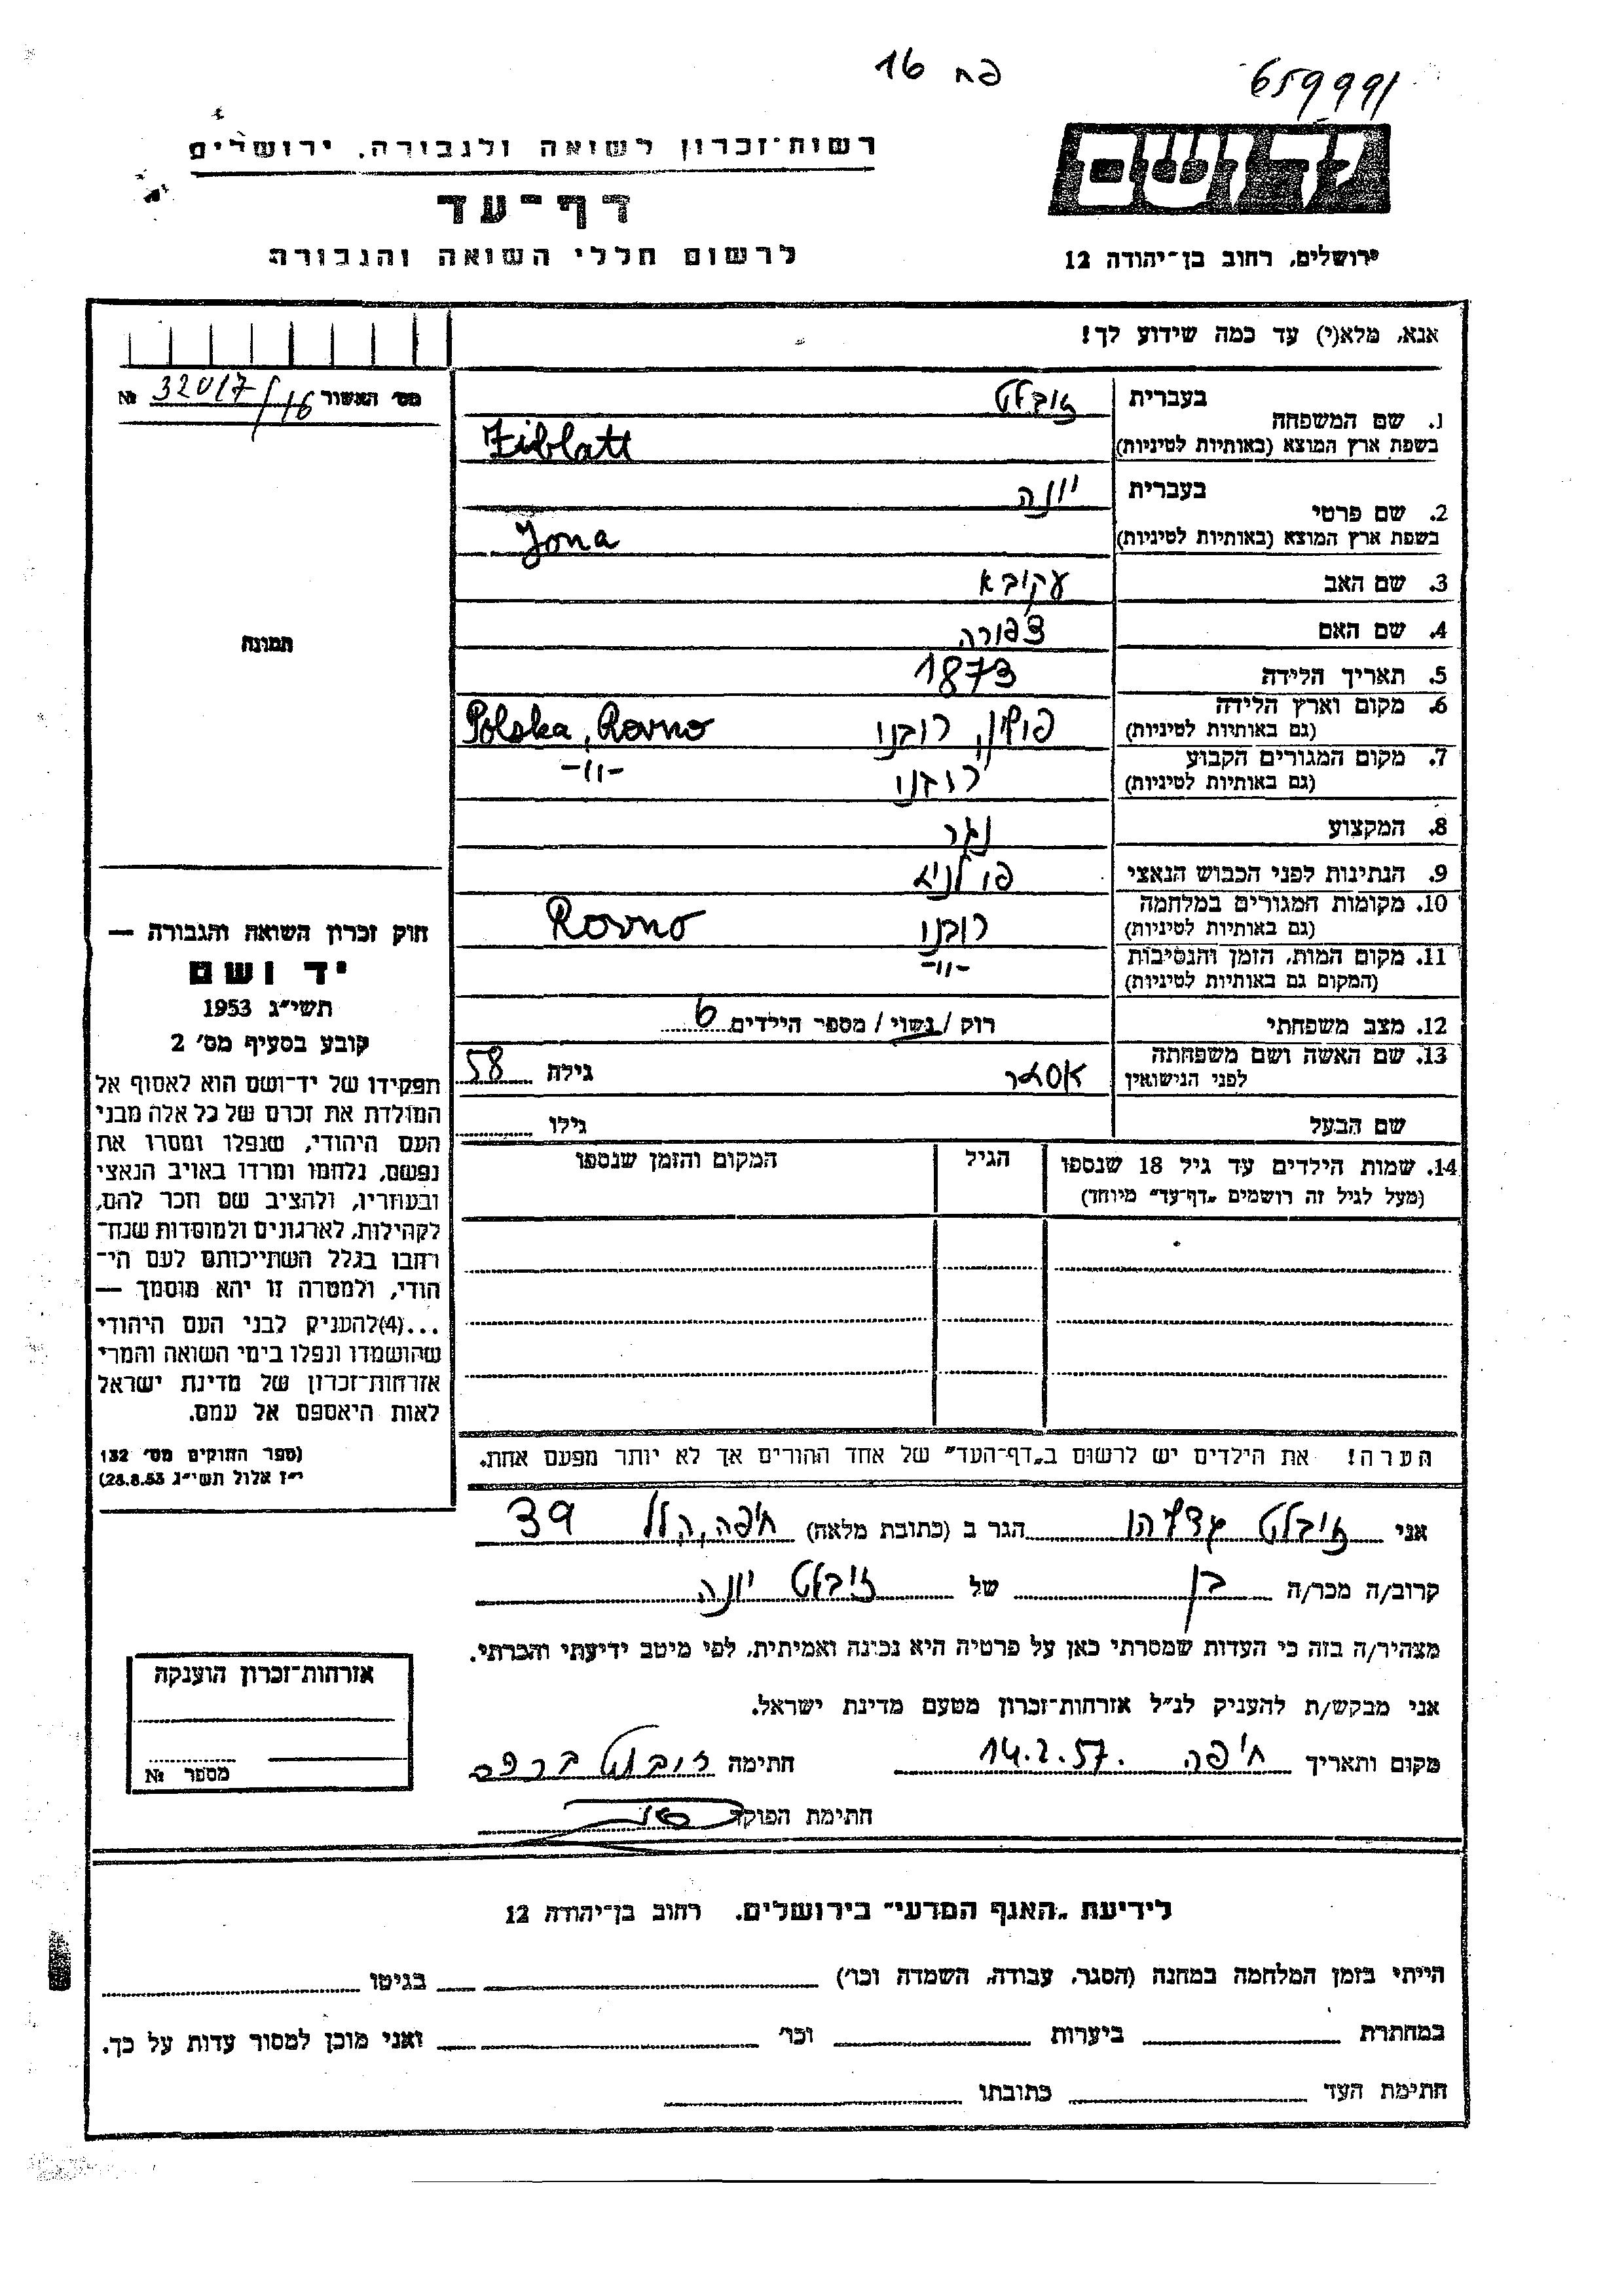 פח 16
659991
יד ושם
ירושלים, רחוב בן־יהודה 12
רשות־זכרון לשואה ולגבורה, ירושלים
דף־עד
לרשום חללי השואה והגבורה
אנא, מלא(י) עד כמה שידוע לך!
מס׳ האשור 32017/16 №
1. שם המשפחה
בעברית זיבלט
בשפת ארץ המוצא (באותיות לטיניות) Ziblatt
2. שם פרטי
בעברית יונה
בשפת ארץ המוצא (באותיות לטיניות) Jona
3. שם האב עקיבא
4. שם האם צפורה
5. תאריך הלידה 1873
6. מקום וארץ הלידה פולין, רובנו Polska, Rovno
(גם באותיות לטיניות)
7. מקום המגורים הקבוע רובנו -"-
(גם באותיות לטיניות)
8. המקצוע נגר
9. הנתינות לפני הכבוש הנאצי פולנית
10. מקומות המגורים במלחמה רובנו Rovno
(גם באותיות לטיניות)
11. מקום המות, הזמן והנסיבות -"-
(המקום גם באותיות לטיניות)
12. מצב משפחתי רוק / נשוי / מספר הילדים 6
13. שם האשה ושם משפחתה אסתר גילה 58
לפני הנישואין
שם הבעל גילו
14. שמות הילדים עד גיל 18 שנספו הגיל המקום והזמן שנספו
(מעל לגיל זה רושמים „דף־עד״ מיוחד)
הערה! את הילדים יש לרשום ב„דף־העד״ של אחד ההורים אך לא יותר מפעם אחת.
תמונה
חוק זכרון השואה והגבורה —
יד ושם
תשי״ג 1953
קובע בסעיף מס׳ 2
תפקידו של יד־ושם הוא לאסוף אל
המולדת את זכרם של כל אלה מבני
העם היהודי, שנפלו ומסרו את
נפשם, נלחמו ומרדו באויב הנאצי
ובעוזריו, ולהציב שם וזכר להם,
לקהילות, לארגונים ולמוסדות שנח־
רבו בגלל השתייכותם לעם הי־
הודי, ולמטרה זו יהא מוסמך —
...(4)להעניק לבני העם היהודי
שהושמדו ונפלו בימי השואה והמרי
אזרחות־זכרון של מדינת ישראל
לאות היאספם אל עמם.
(ספר החוקים מס׳ 132
י״ז אלול תשי״ג 28.8.53)
אני זיבלט גדליהו הגר ב (כתובת מלאה) חיפה, הלל 39
קרוב/ה מכר/ה בן של זיבלט יונה
מצהיר/ה בזה כי העדות שמסרתי כאן על פרטיה היא נכונה ואמיתית, לפי מיטב ידיעתי והכרתי.
אני מבקש/ת להעניק לנ״ל אזרחות־זכרון מטעם מדינת ישראל.
מקום ותאריך חיפה 14.2.57. חתימה זיבלט
חתימת הפוקד
אזרחות־זכרון הוענקה
מספר №
לידיעת „האגף המדעי״ בירושלים. רחוב בן־יהודה 12
הייתי בזמן המלחמה במחנה (הסגר, עבודה, השמדה וכו׳) בגיטו
במחתרת ביערות וכו׳ ואני מוכן למסור עדות על כך.
חתימת העד כתובתו